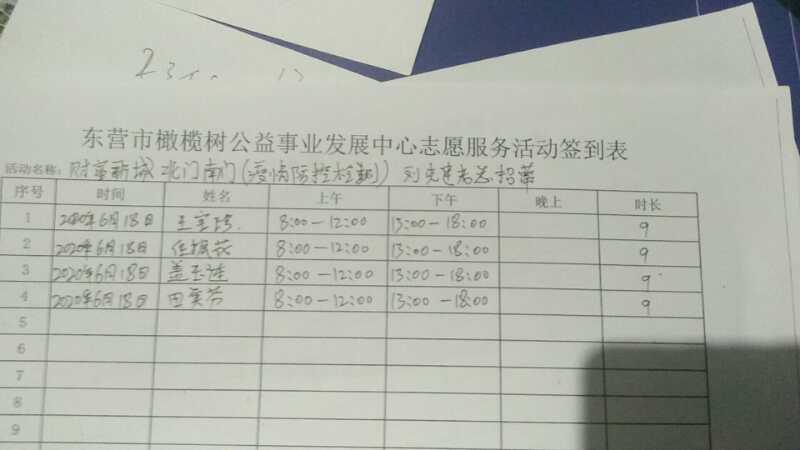 东营市橄榄树公益事业发展中心志愿服务活动签到表
活动名称: 财富新城 北门南门(疫情防控检测)
序号 时间 姓名 上午 下午 晚上 时长
1 2020年6月18日 王 8:00-12:00 13:00-18:00 9
2 2020年6月18日 任振花 8:00-12:00 13:00-18:00 9
3 2020年6月18日 盖玉莲 8:00-12:00 13:00-18:00 9
4 2020年6月18日 田 芬 8:00-12:00 13:00-18:00 9
5
6
7
8
9